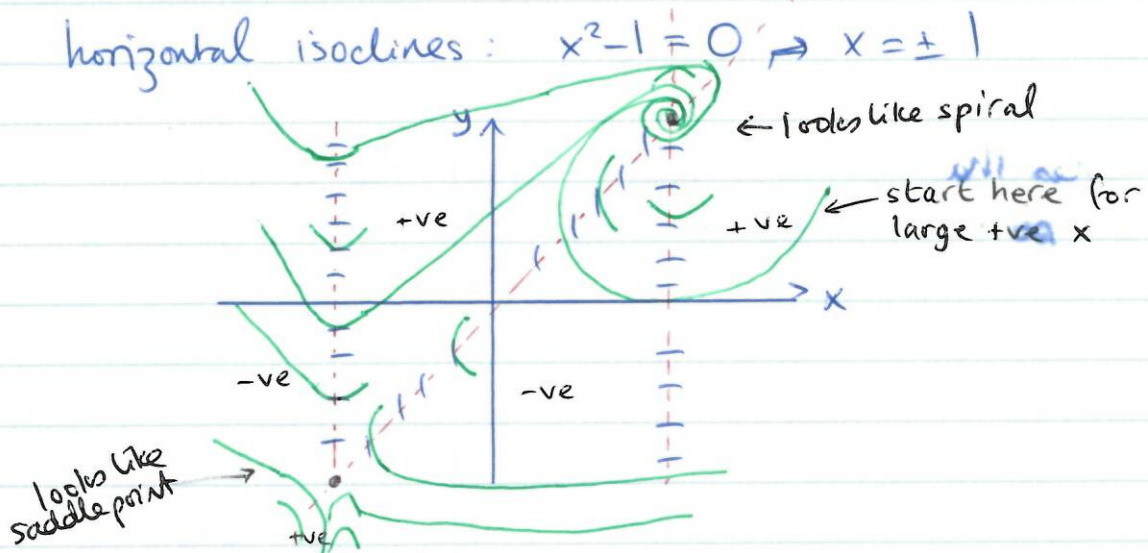 horizontal isoclines : x²-1 = 0 → x = ± 1
y
← looks like spiral
+ve
+ve
← start here for
large +ve x
x
-ve
-ve
looks like
saddlepoint →
+ve